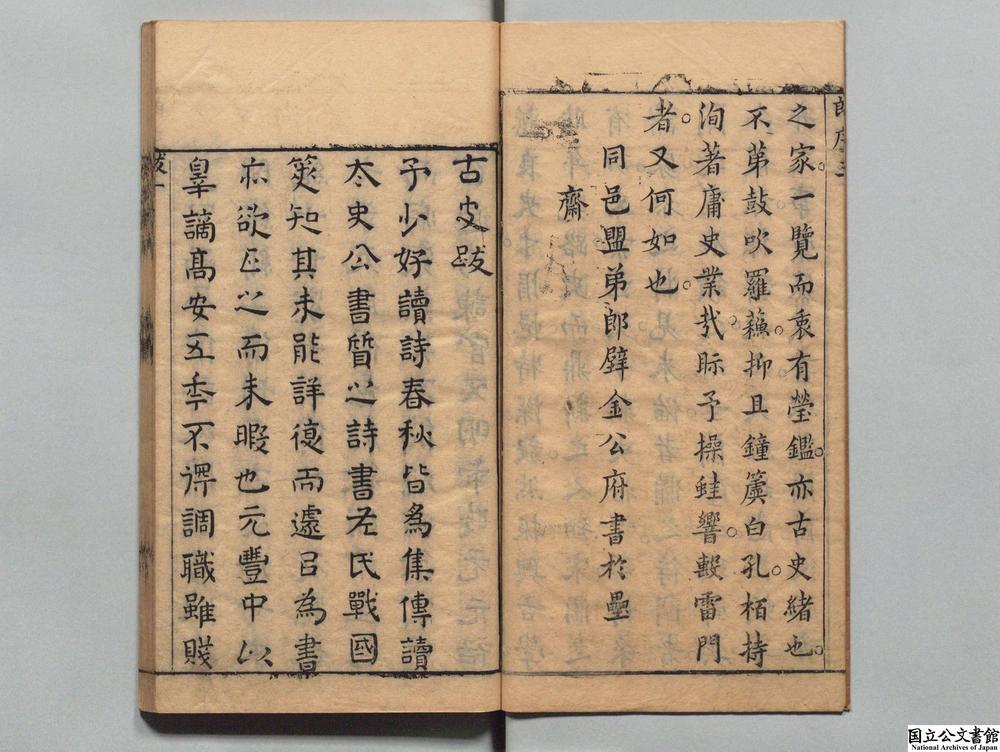 之家一覽而衷有瑩鑑亦古史緒也
不苐鼓吹羅蘓抑且鐘簴白孔栢持
洵著庸史業㢤眎予操蛙響轂雷門
者又何如也
同邑盟弟郎璧金公府書於壘
齋
古史跋
予少好讀詩春秋皆為集傳讀
太史公書質之詩書左氏戰國
策知其未能詳復而遽㠯為書
亦欲正之而未暇也元豐中以
辠謫高安五年不得調職雖賤
跋一
国立公文書館
National Archives of Japan